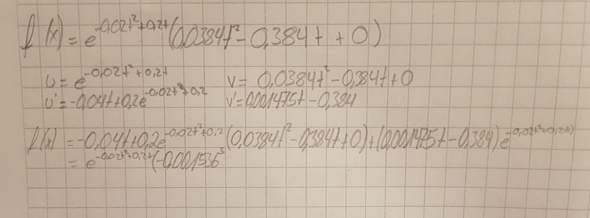 f'(x) = e^-0,02t²+0,2t (0,0384t² - 0,384t + 0)
u = e^-0,02t²+0,2t v = 0,0384t² - 0,384t + 0
u' = -0,04t + 0,2e^-0,02t²+0,2 v' = 0,001475t - 0,384
f'(x) = -0,04t + 0,2e^-0,02t²+0,2 (0,0384t² - 0,384t + 0) + (0,001475t - 0,384) e^-0,02t²+0,2t)
= e^-0,02t²+0,2t (-0,001536³